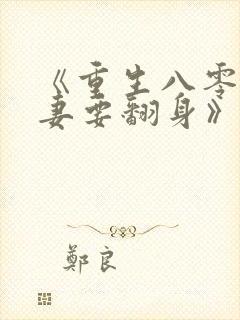 《重生八零
妻要翻身》
鄭良